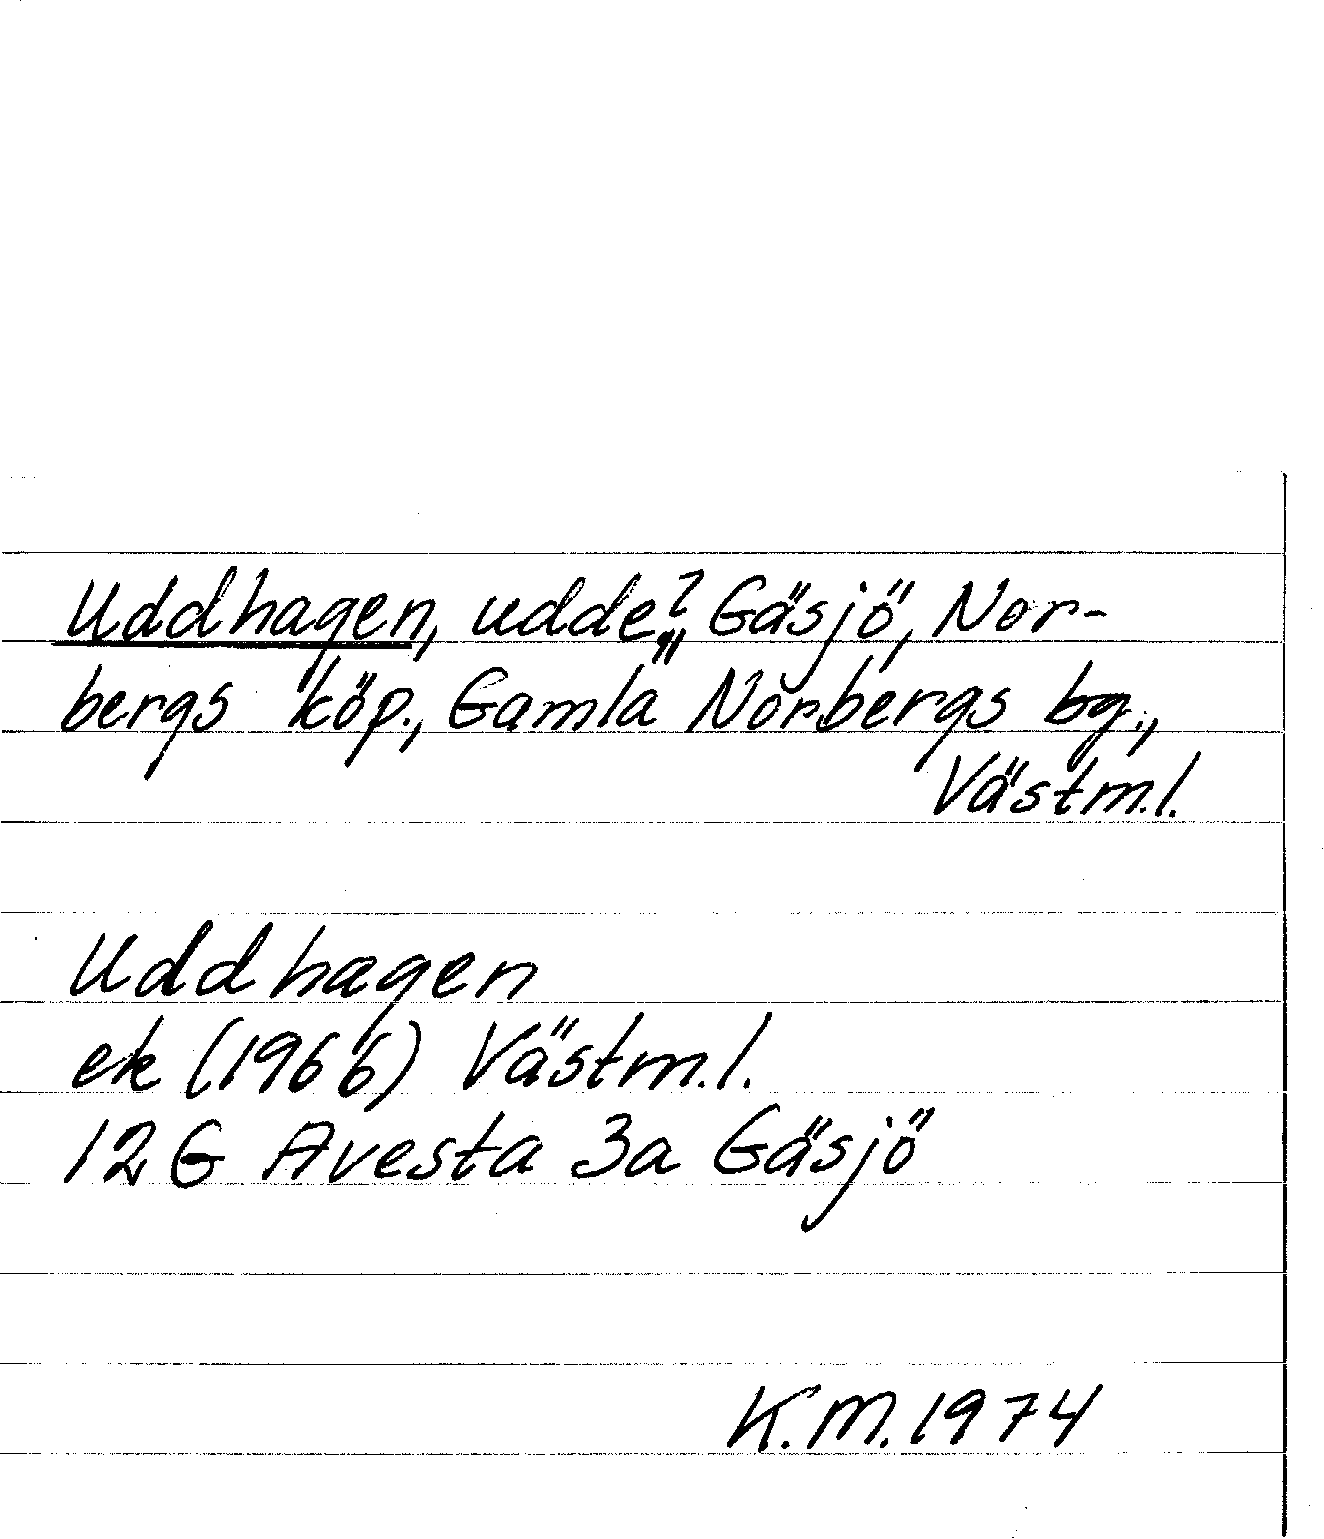 Uddhagen, udde?, Gäsjö, Nor-
bergs köp., Gamla Norbergs bg.,
Västm.l.
Uddhagen
ek (1966) Västm.l.
12G Avesta 3a Gäsjö
K.M. 1974